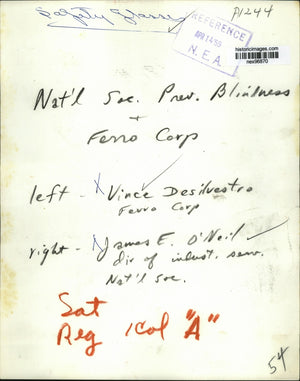 Safety Glasses
P1244
REFERENCE
APR 14 59
N.E.A.
historicimages.com
nex96870
Nat'l Soc. Prev. Blindness
+
Ferro Corp
left - X Vince Desilvestro
Ferro Corp
right - X James E. O'Neil
dir of indust. serv.
Nat'l Soc.
Sat
Reg 1 Col "A"
54